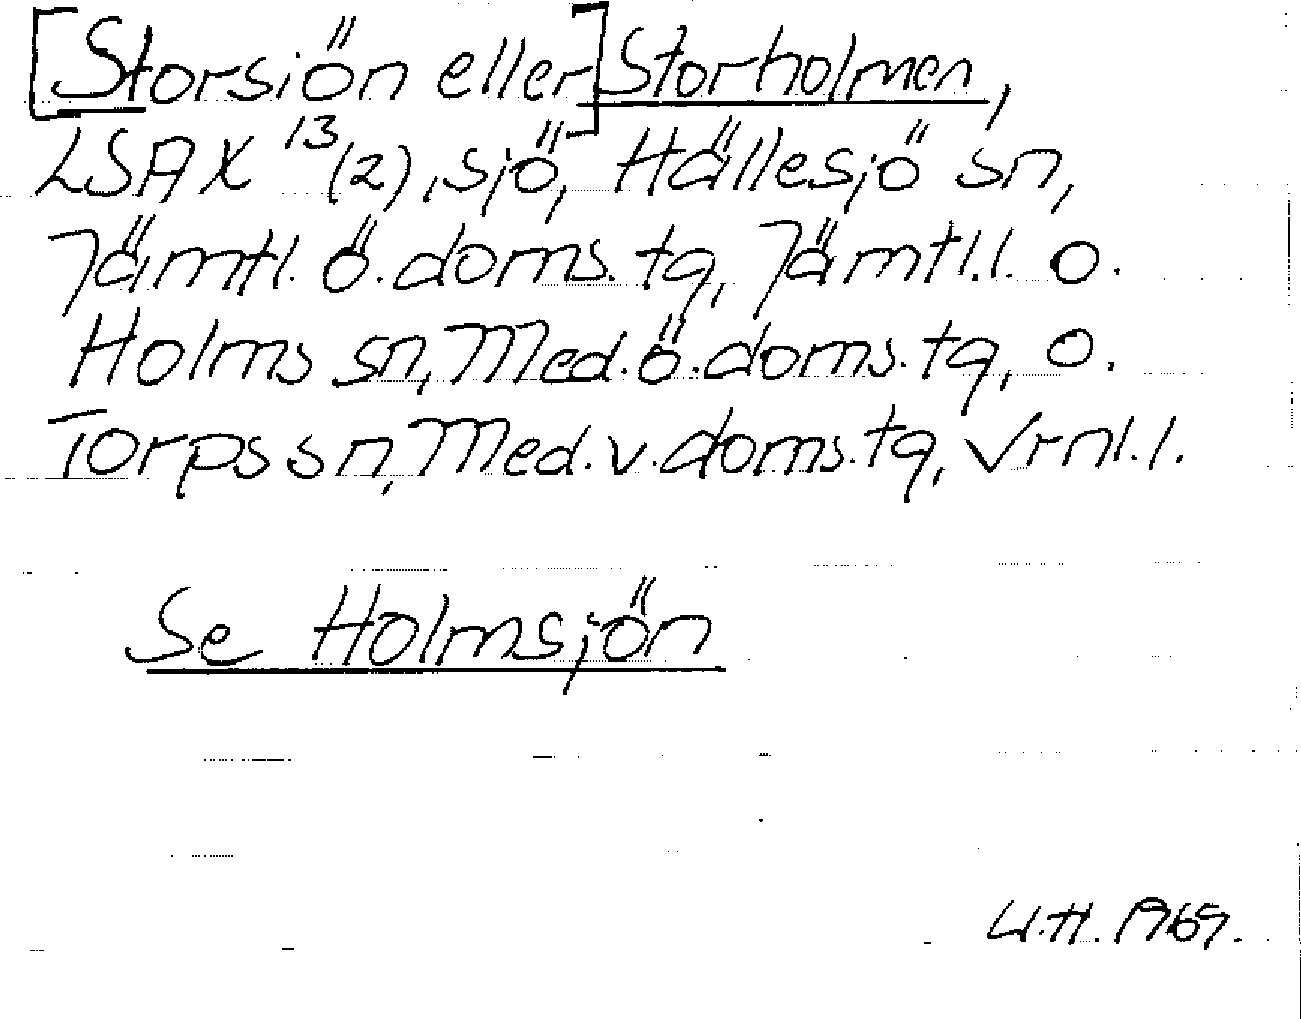 [Storsiön eller] Storholmen,
LSA X 13 (2), sjö, Hällesjö sn,
Jämtl. ö. doms. tg, Jämtl. l. o.
Holms sn, Med. ö. doms. tg, o.
Torps sn, Med. v. doms. tg, Vrnl. l.
Se Holmsjön
U.H. 1969.